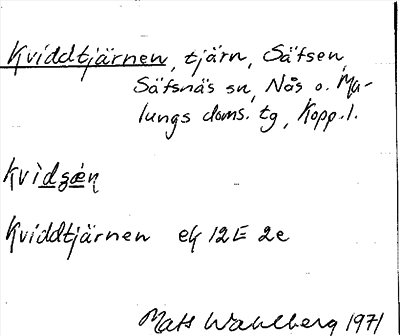 Kviddtjärnen, tjärn, Säfsen,
Säfsnäs sn, Nås o. Ma-
lungs doms. tg, Kopp. l.
Kviddtjärnen ek 12E 2e
Mats Wahlberg 1971